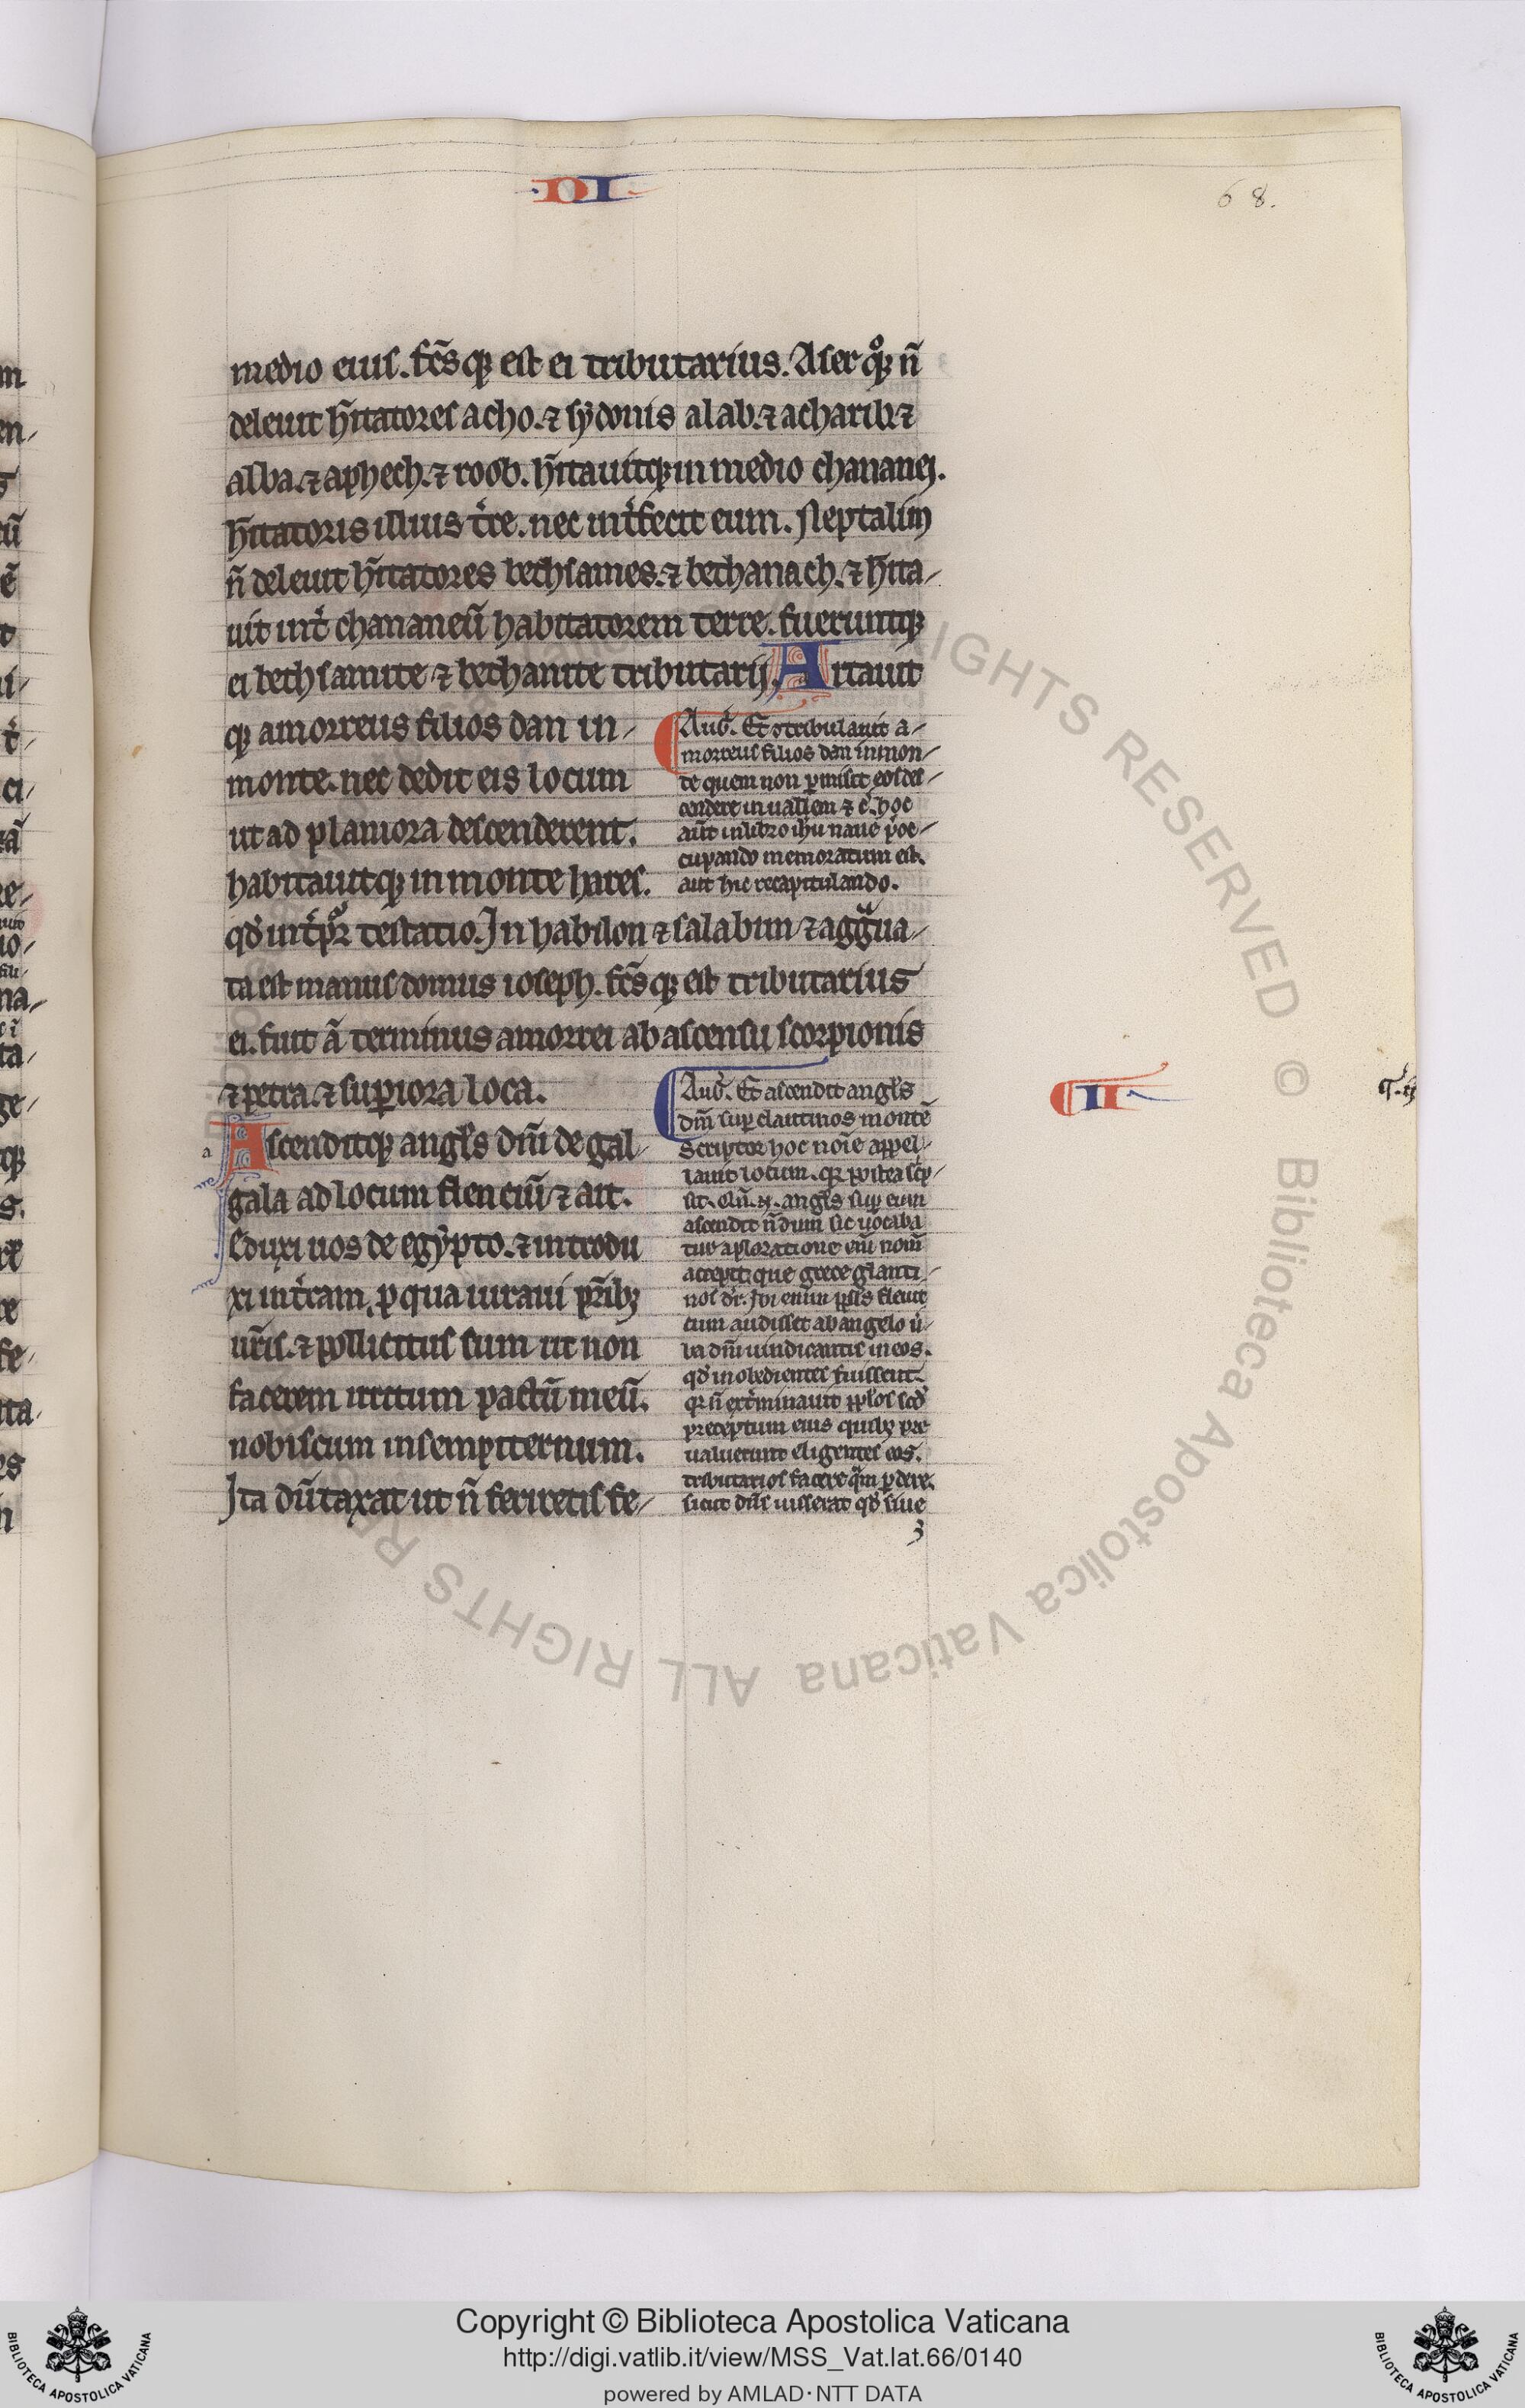 DI
68.
medio eius. fc̃sq; est ei tributarius. Aser qͦq; ñ
deleuit h̃itatores acho. ⁊ sydonis alab. ⁊ achazib. ⁊
alba. ⁊ aphech. ⁊ roob. h̃itauitq; in medio chananei.
h̃itatoris illius t̉re. nec int̉fecit eum. Neptalim
ñ deleuit h̃itatores bethsames. ⁊ bethanach. ⁊ h̃ita/
uit int̉ chananeũ habitatorem terre. fueruntq;
ei bethsamite ⁊ bethanite tributarij. Artauit
q; amorreus filios dan in/
monte. nec dedit eis locum
ut ad planiora descenderent.
habitauitq; in monte hares.
qd̉ int̉p̃ꝛ testatio. In habilon ⁊ salabim ⁊ aggͣua/
ta est manus domus ioseph. fc̃sq; est tributarius
ei. fuit ã terminus amorrei ab ascensu scorpionis
⁊ petra. ⁊ suꝑiora loca.
Aug̉. Et tribulauit a/
morreus filios dan in mon/
te quem non ꝑmisit eos des/
cendere in uallem ⁊ c̉. hoc
aũt in libro ihũ naue p̉oc/
cupando memoratum est.
aut hic recapitulando.
a
Ascenditq; angl̃s dñi de gal/
gala ad locum flenciũ ⁊ ait.
Eduxi uos de egypto. ⁊ introdu
xi in t̉ram, ꝓ qua iuraui pr̃ibꝫ
ur̃is. ⁊ pollicitus sum ut non
facerem irritum pactũ meũ.
nobiscum in sempiternum.
Ita dũtaxat ut ñ feriretis fe/
Aug̉. Et ascendit angl̃s
dñi suꝑ clautinos montẽ
Scriptor hoc noĩe appel/
lauit locum. qꝛ postea sc̃p/
sit. Cũ .n. angl̃s suꝑ eum
ascendit ñdum sic uocaba
tur a ploratione eĩ nom̃
accepit que grece glauti/
nos dr̃. Ibi enim ppl̃s fleuit
cum audisset ab angelo ủ/
ba dñi uindicantis in eos.
qd̉ inobedientes fuissent.
qꝛ ñ ext̉minauit ppl̃os scd̉
preceptum eius quibꝫ pre
ualuerunt eligentes eos.
tributarios facere qͣm ꝑdere.
sicut dñs iusserat qd̉ siue
3
II
q. ij
Copyright © Biblioteca Apostolica Vaticana
http://digi.vatlib.it/view/MSS_Vat.lat.66/0140
powered by AMLAD·NTT DATA
BIBLIOTECA APOSTOLICA VATICANA
BIBLIOTECA APOSTOLICA VATICANA
ALL RIGHTS RESERVED © Biblioteca Apostolica Vaticana